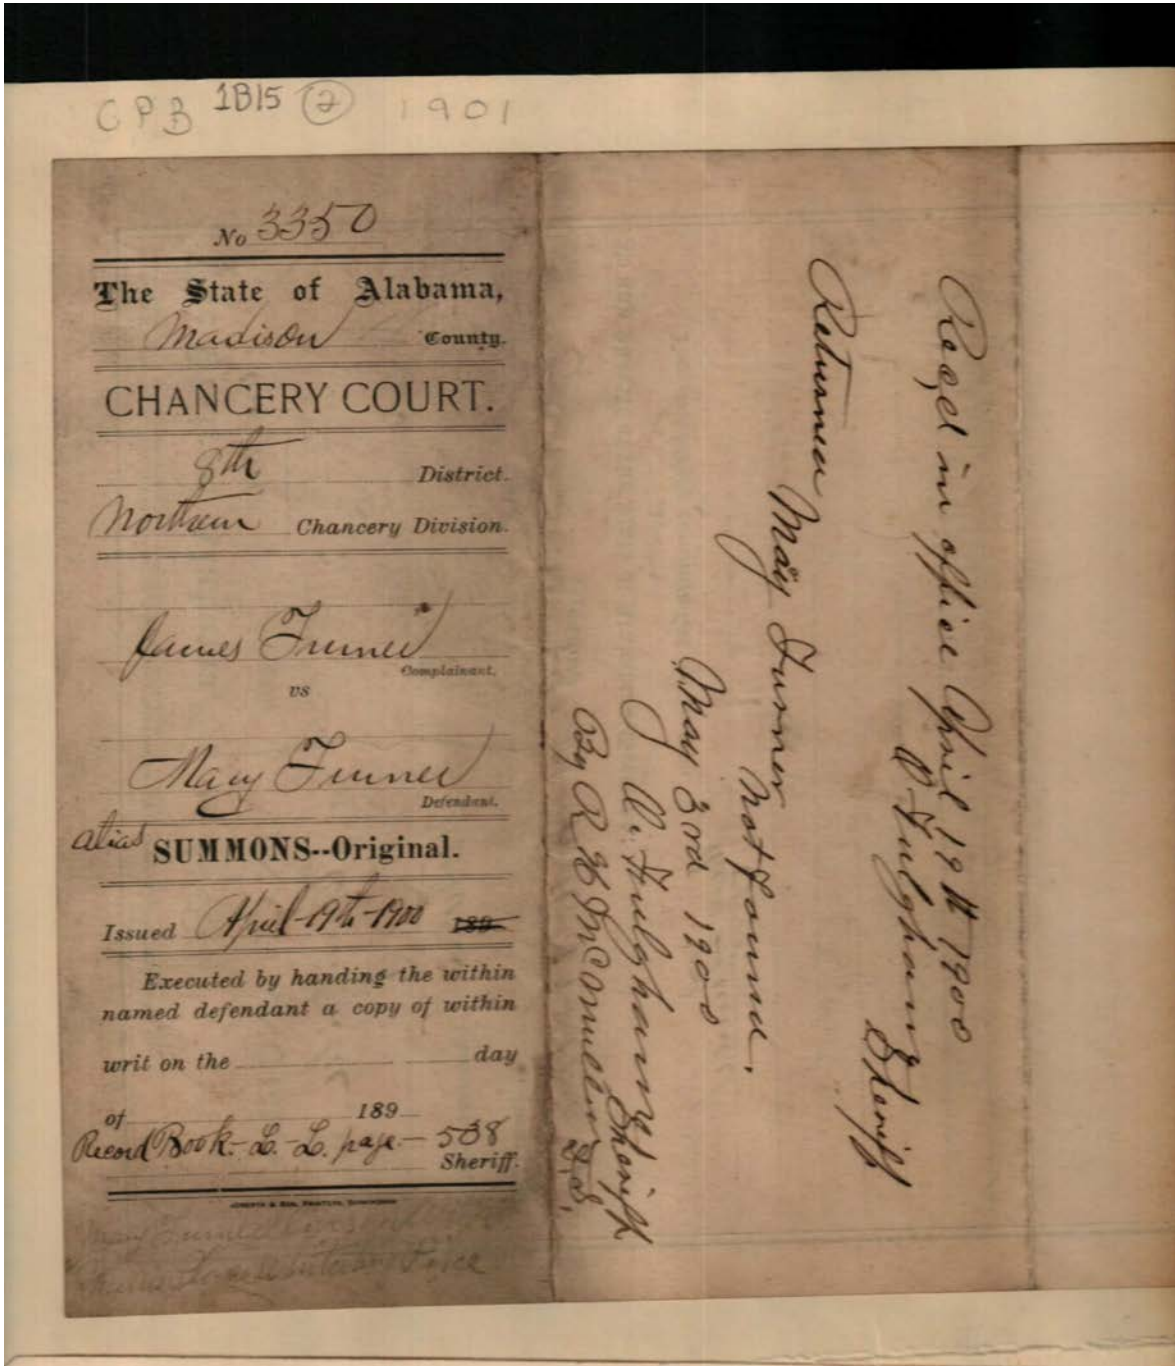 CPB 1B15 2 1901
No 3350
The State of Alabama,
Madison County.
CHANCERY COURT.
8th District.
Northern Chancery Division.
James Turner
Complainant.
vs
Mary Turner
Defendant.
alias
SUMMONS--Original.
Issued April-19th-1900 189
Executed by handing the within
named defendant a copy of within
writ on the day
of 189
Record Book.- L.- L. page.- 538
Sheriff.
Mary Turner
Price
Reced in office April 19th 1900
A Fulgham Sheriff
Returned May Turner
Not found.
May 3rd 1900
A. Fulgham Sheriff
By R H D.S.